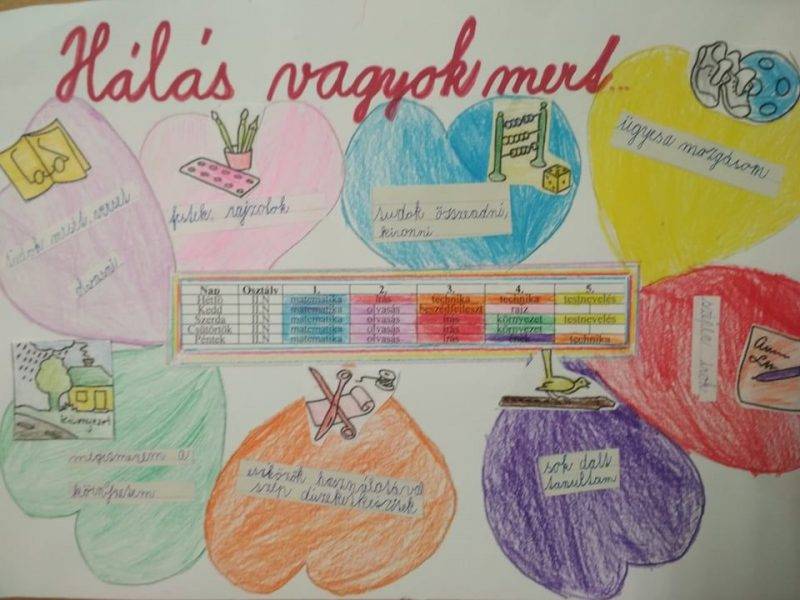 Hálás vagyok mert...
tudok mesét, verset
olvasni
festek, rajzolok
tudok összeadni,
kivonni
ügyesen mozgásom
Nap Osztály 1. 2. 3. 4. 5.
Hétfő II.N matematika írás technika technika testnevelés
Kedd II.N matematika olvasás beszédfejleszt rajz
Szerda II.N matematika olvasás írás környezet testnevelés
Csütörtök II.N matematika olvasás írás környezet
Péntek II.N matematika olvasás írás ének technika
környezet
megismerem a
környzetem
eszközök használatával
szép díszeket készítek
sok dalt
tanultam
írok